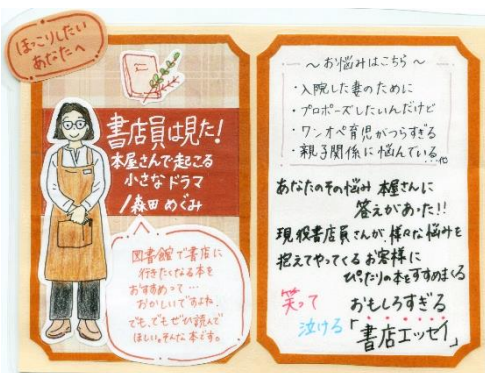 ほっこりしたい
あなたへ
書店員は見た!
本屋さんで起こる
小さなドラマ
/森田めぐみ
図書館で書店に
行きたくなる本を
おすすめって…
おかしいですよね。
でも、でもぜひ読んで
ほしい。そんな本です。
~お悩みはこちら~
・入院した妻のために
・プロポーズしたいんだけど
・ワンオペ育児がつらすぎる
・親子関係に悩んでいる 他
あなたのその悩み 本屋さんに
答えがあった!!
現役書店員さんが、様々な悩みを
抱えてやってくるお客様に
ぴったりの本をすすめまくる
笑って おもしろすぎる
泣ける「書店エッセイ」